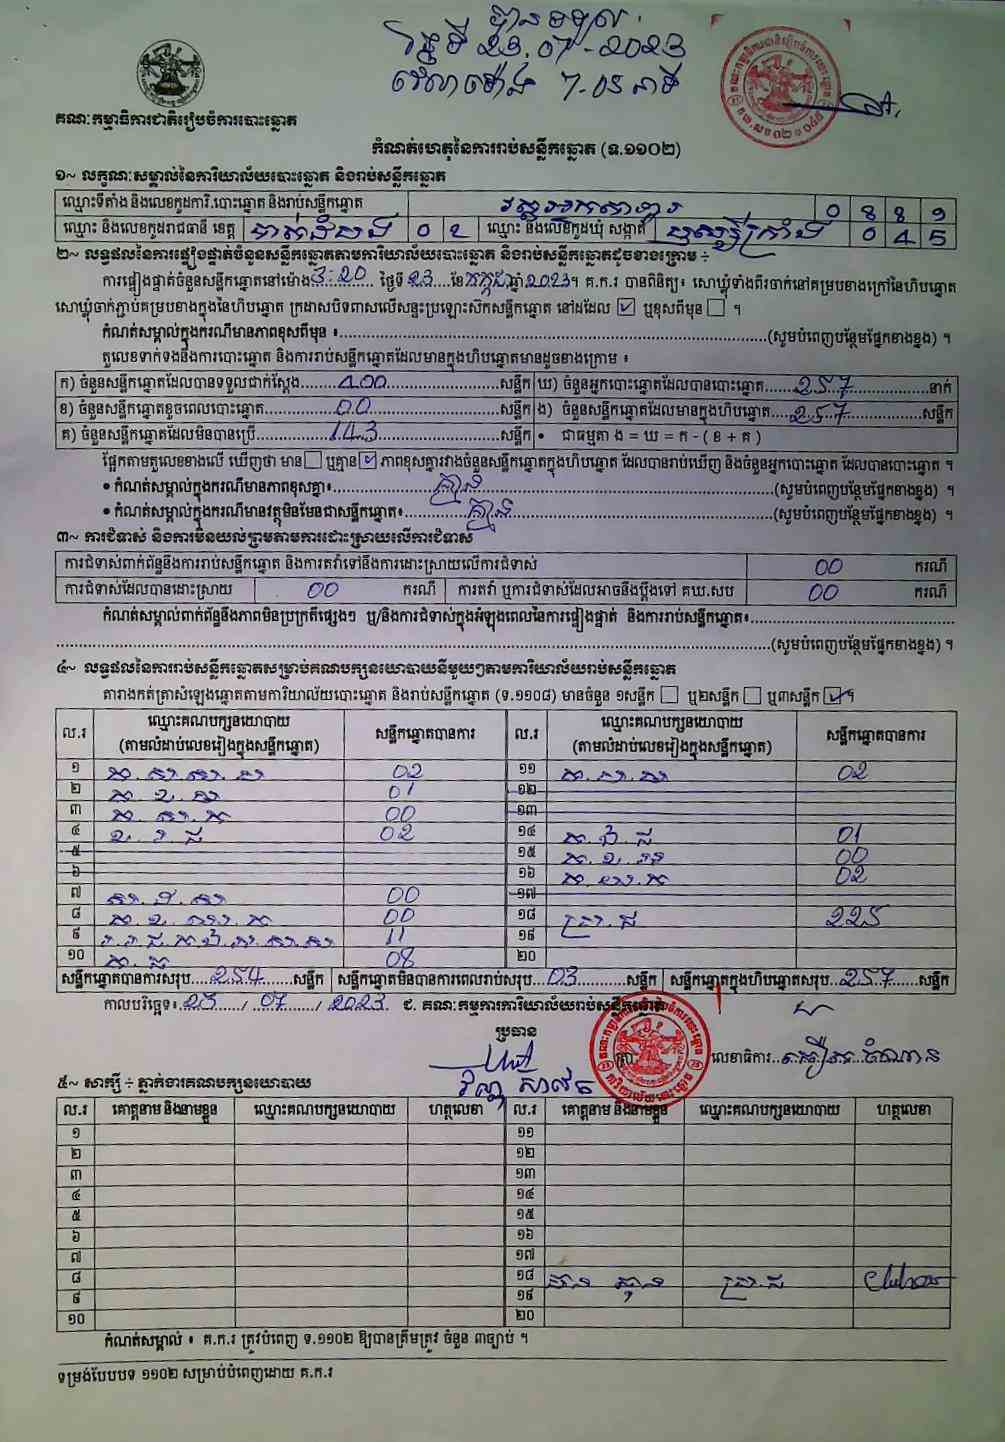 បានទទួល
ថ្ងៃទី 23.07-2023
វេលាម៉ោង 7-05 នាទី
គណៈកម្មាធិការជាតិរៀបចំការបោះឆ្នោត
កំណត់ហេតុនៃការរាប់សន្លឹកឆ្នោត (ទ.១១០២)
១~ លក្ខណៈសម្គាល់នៃការិយាល័យបោះឆ្នោត និងរាប់សន្លឹកឆ្នោត
ឈ្មោះទីតាំង និងលេខកូដការិ.បោះឆ្នោត និងរាប់សន្លឹកឆ្នោត 0 8 8 9
ឈ្មោះ និងលេខកូដរាជធានី ខេត្ត បាត់ដំបង 0 2 ឈ្មោះ និងលេខកូដឃុំ សង្កាត់ ឫស្សីក្រាំង 0 4 5
២~ លទ្ធផលនៃការផ្ទៀងផ្ទាត់ចំនួនសន្លឹកឆ្នោតតាមការិយាល័យបោះឆ្នោត និងរាប់សន្លឹកឆ្នោតដូចខាងក្រោម ÷
ការផ្ទៀងផ្ទាត់ចំនួនសន្លឹកឆ្នោតនៅម៉ោង 3:20 ថ្ងៃទី 23 ខែ កក្កដា ឆ្នាំ 2023។ គ.ក.រ បានពិនិត្យ៖ សោឃ្លុំទាំងពីរចាក់នៅគម្របខាងក្រៅនៃហិបឆ្នោត
សោឃ្លុំចាក់ភ្ជាប់គម្របខាងក្នុងនៃហិបឆ្នោត ក្រដាសបិទពាសលើសន្ទះប្រឡោះសឹកសន្លឹកឆ្នោត នៅដដែល ☑ ឬខុសពីមុន ☐ ។
កំណត់សម្គាល់ក្នុងករណីមានភាពខុសពីមុន ៖ (សូមបំពេញបន្ថែមផ្នែកខាងខ្នង) ។
តួលេខទាក់ទងនឹងការបោះឆ្នោត និងការរាប់សន្លឹកឆ្នោតដែលមានក្នុងហិបឆ្នោតមានដូចខាងក្រោម ៖
ក) ចំនួនសន្លឹកឆ្នោតដែលបានទទួលជាក់ស្ដែង 400 សន្លឹក ឃ) ចំនួនអ្នកបោះឆ្នោតដែលបានបោះឆ្នោត 257 នាក់
ខ) ចំនួនសន្លឹកឆ្នោតខូចពេលបោះឆ្នោត 00 សន្លឹក ង) ចំនួនសន្លឹកឆ្នោតដែលមានក្នុងហិបឆ្នោត 257 សន្លឹក
គ) ចំនួនសន្លឹកឆ្នោតដែលមិនបានប្រើ 143 សន្លឹក • ជាធម្មតា ង = ឃ = ក - ( ខ + គ )
ផ្អែកតាមតួលេខខាងលើ ឃើញថា មាន ☐ ឬគ្មាន ☑ ភាពខុសគ្នារវាងចំនួនសន្លឹកឆ្នោតក្នុងហិបឆ្នោត ដែលបានរាប់ឃើញ និងចំនួនអ្នកបោះឆ្នោត ដែលបានបោះឆ្នោត ។
• កំណត់សម្គាល់ក្នុងករណីមានភាពខុសគ្នា៖ គ្មាន (សូមបំពេញបន្ថែមផ្នែកខាងខ្នង) ។
• កំណត់សម្គាល់ក្នុងករណីមានវត្ថុមិនមែនជាសន្លឹកឆ្នោត៖ គ្មាន (សូមបំពេញបន្ថែមផ្នែកខាងខ្នង) ។
៣~ ការជំទាស់ និងការមិនយល់ព្រមតាមការដោះស្រាយលើការជំទាស់
ការជំទាស់ពាក់ព័ន្ធនឹងការរាប់សន្លឹកឆ្នោត និងការតវ៉ាទៅនឹងការដោះស្រាយលើការជំទាស់ 00 ករណី
ការជំទាស់ដែលបានដោះស្រាយ 00 ករណី ការតវ៉ា ឬការជំទាស់ដែលអាចនឹងប្ដឹងទៅ គឃ.សប 00 ករណី
កំណត់សម្គាល់ពាក់ព័ន្ធនឹងភាពមិនប្រក្រតីផ្សេងៗ ឬ/និងការជំទាស់ក្នុងអំឡុងពេលនៃការផ្ទៀងផ្ទាត់ និងការរាប់សន្លឹកឆ្នោត៖
(សូមបំពេញបន្ថែមផ្នែកខាងខ្នង) ។
៤~ លទ្ធផលនៃការរាប់សន្លឹកឆ្នោតសម្រាប់គណបក្សនយោបាយនីមួយៗតាមការិយាល័យរាប់សន្លឹកឆ្នោត
តារាងកត់ត្រាសំឡេងឆ្នោតតាមការិយាល័យបោះឆ្នោត និងរាប់សន្លឹកឆ្នោត (ទ.១១០៨) មានចំនួន ១សន្លឹក ☐ ឬ២សន្លឹក ☐ ឬ៣សន្លឹក ☑ ។
ល.រ ឈ្មោះគណបក្សនយោបាយ (តាមលំដាប់លេខរៀងក្នុងសន្លឹកឆ្នោត) សន្លឹកឆ្នោតបានការ ល.រ ឈ្មោះគណបក្សនយោបាយ (តាមលំដាប់លេខរៀងក្នុងសន្លឹកឆ្នោត) សន្លឹកឆ្នោតបានការ
១ 02 ១១ 02
២ 01 ១២
៣ 00 ១៣
៤ 02 ១៤ 01
៥ ១៥ 00
៦ ១៦ 02
៧ 00 ១៧
៨ 00 ១៨ ប្រ.ជ 225
៩ 11 ១៩
១០ 08 ២០
សន្លឹកឆ្នោតបានការសរុប 254 សន្លឹក សន្លឹកឆ្នោតមិនបានការពេលរាប់សរុប 03 សន្លឹក សន្លឹកឆ្នោតក្នុងហិបឆ្នោតសរុប 257 សន្លឹក
កាលបរិច្ឆេទ៖ 23 / 07 / 2023 ជ. គណៈកម្មការការិយាល័យរាប់សន្លឹកឆ្នោត
ប្រធាន
លេខាធិការ
៥~ សាក្សី ÷ ភ្នាក់ងារគណបក្សនយោបាយ
ល.រ គោត្តនាម និងនាមខ្លួន ឈ្មោះគណបក្សនយោបាយ ហត្ថលេខា ល.រ គោត្តនាម និងនាមខ្លួន ឈ្មោះគណបក្សនយោបាយ ហត្ថលេខា
១ ១១
២ ១២
៣ ១៣
៤ ១៤
៥ ១៥
៦ ១៦
៧ ១៧
៨ ១៨ ប្រ.ជ
៩ ១៩
១០ ២០
កំណត់សម្គាល់ ៖ គ.ក.រ ត្រូវបំពេញ ទ.១១០២ ឱ្យបានត្រឹមត្រូវ ចំនួន ៣ច្បាប់ ។
ទម្រង់បែបបទ ១១០២ សម្រាប់បំពេញដោយ គ.ក.រ